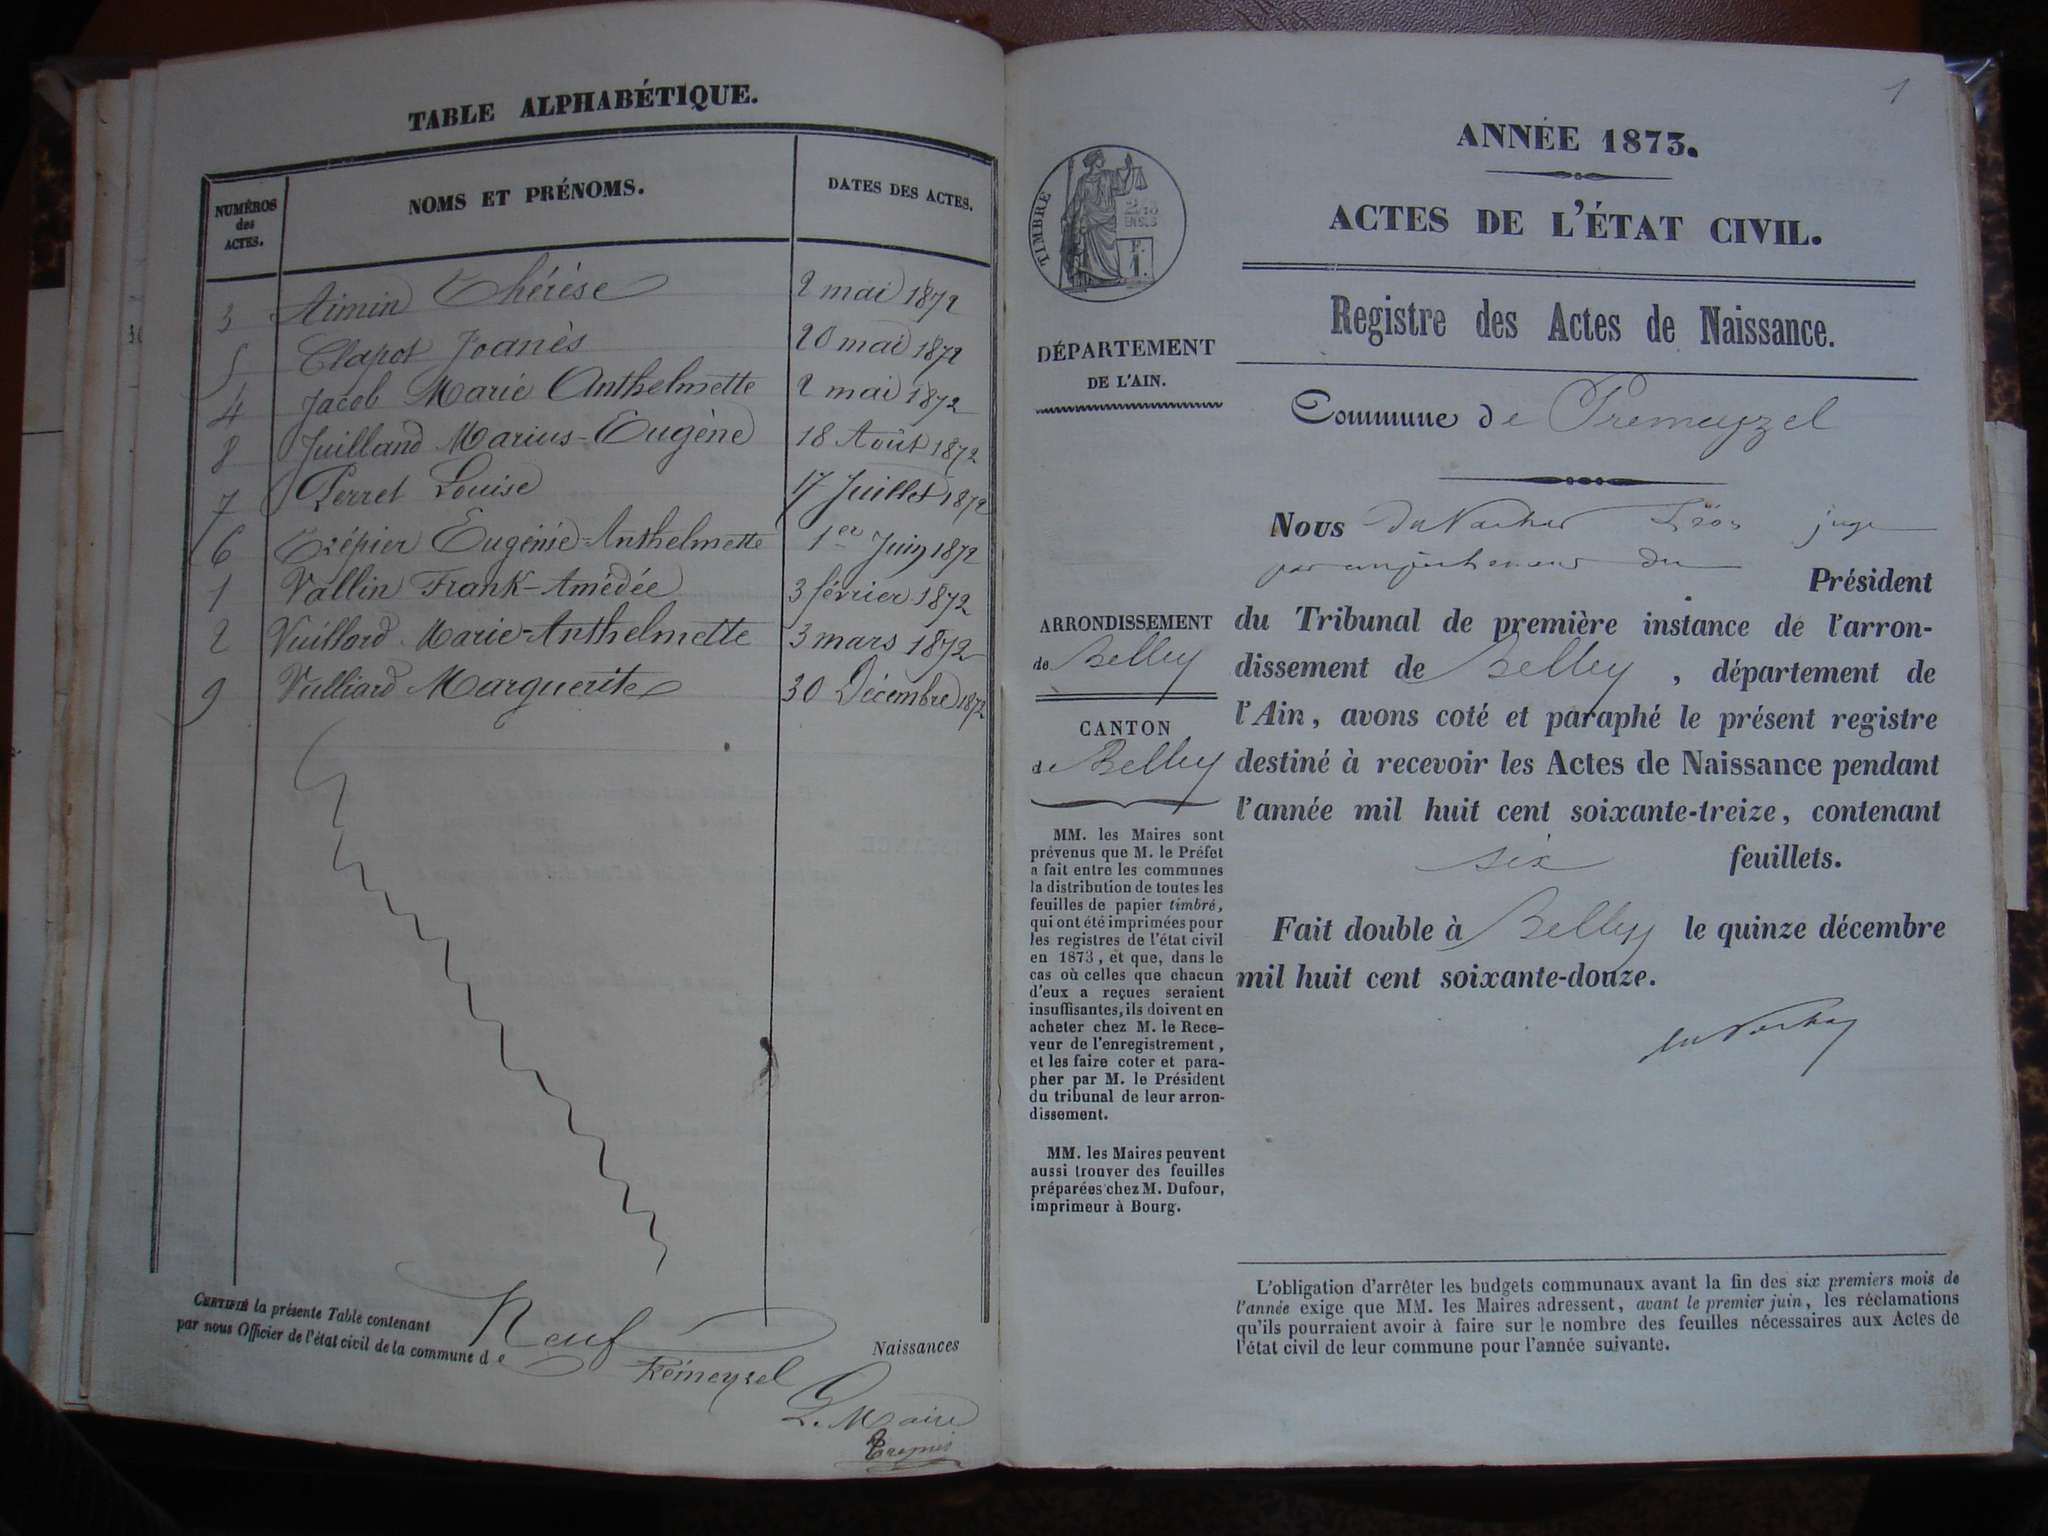 TABLE ALPHABÉTIQUE.
NUMÉROS des ACTES. NOMS ET PRÉNOMS. DATES DES ACTES.
3 Aimin Thérèse 2 mai 1872
5 Clapot Joanès 20 mai 1872
4 Jacob Marie Anthelmette 2 mai 1872
8 Juilland Marius-Eugène 18 Août 1872
7 Perret Louise 17 Juillet 1872
6 Trépier Eugénie-Anthelmette 1er Juin 1872
1 Vallin Frank-Amédée 3 février 1872
2 Vuillard Marie-Anthelmette 3 mars 1872
9 Vulliard Marguerite 30 Décembre 1872
CERTIFIÉ la présente Table contenant Neuf Naissances
par nous Officier de l'état civil de la commune de Prémeyzel
L. Maire
1
ANNÉE 1873.
ACTES DE L'ÉTAT CIVIL.
Registre des Actes de Naissance.
TIMBRE
DÉPARTEMENT
DE L'AIN.
Commune de Premeyzel
Nous Léon juge
du Président
du Tribunal de première instance de l'arron-
dissement de Belley, département de
l'Ain, avons coté et paraphé le présent registre
destiné à recevoir les Actes de Naissance pendant
l'année mil huit cent soixante-treize, contenant
six feuillets.
Fait double à Belley le quinze décembre
mil huit cent soixante-douze.
ARRONDISSEMENT
de Belley
CANTON
de Belley
MM. les Maires sont
prévenus que M. le Préfet
a fait entre les communes
la distribution de toutes les
feuilles de papier timbré,
qui ont été imprimées pour
les registres de l'état civil
en 1873, et que, dans le
cas où celles que chacun
d'eux a reçues seraient
insuffisantes, ils doivent en
acheter chez M. le Rece-
veur de l'enregistrement,
et les faire coter et para-
pher par M. le Président
du tribunal de leur arron-
dissement.
MM. les Maires peuvent
aussi trouver des feuilles
préparées chez M. Dufour,
imprimeur à Bourg.
L'obligation d'arrêter les budgets communaux avant la fin des six premiers mois de
l'année exige que MM. les Maires adressent, avant le premier juin, les réclamations
qu'ils pourraient avoir à faire sur le nombre des feuilles nécessaires aux Actes de
l'état civil de leur commune pour l'année suivante.